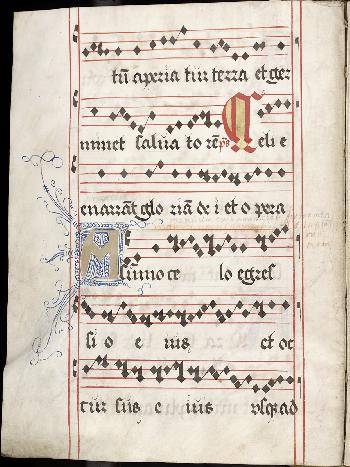 tur̄ aperia tur terra et ger
minet salua to rē ps Celi e
enarrāt glo riā de i et o pera
A summo ce lo egres
si o e ius et oc
cur sus e ius vsq; ad